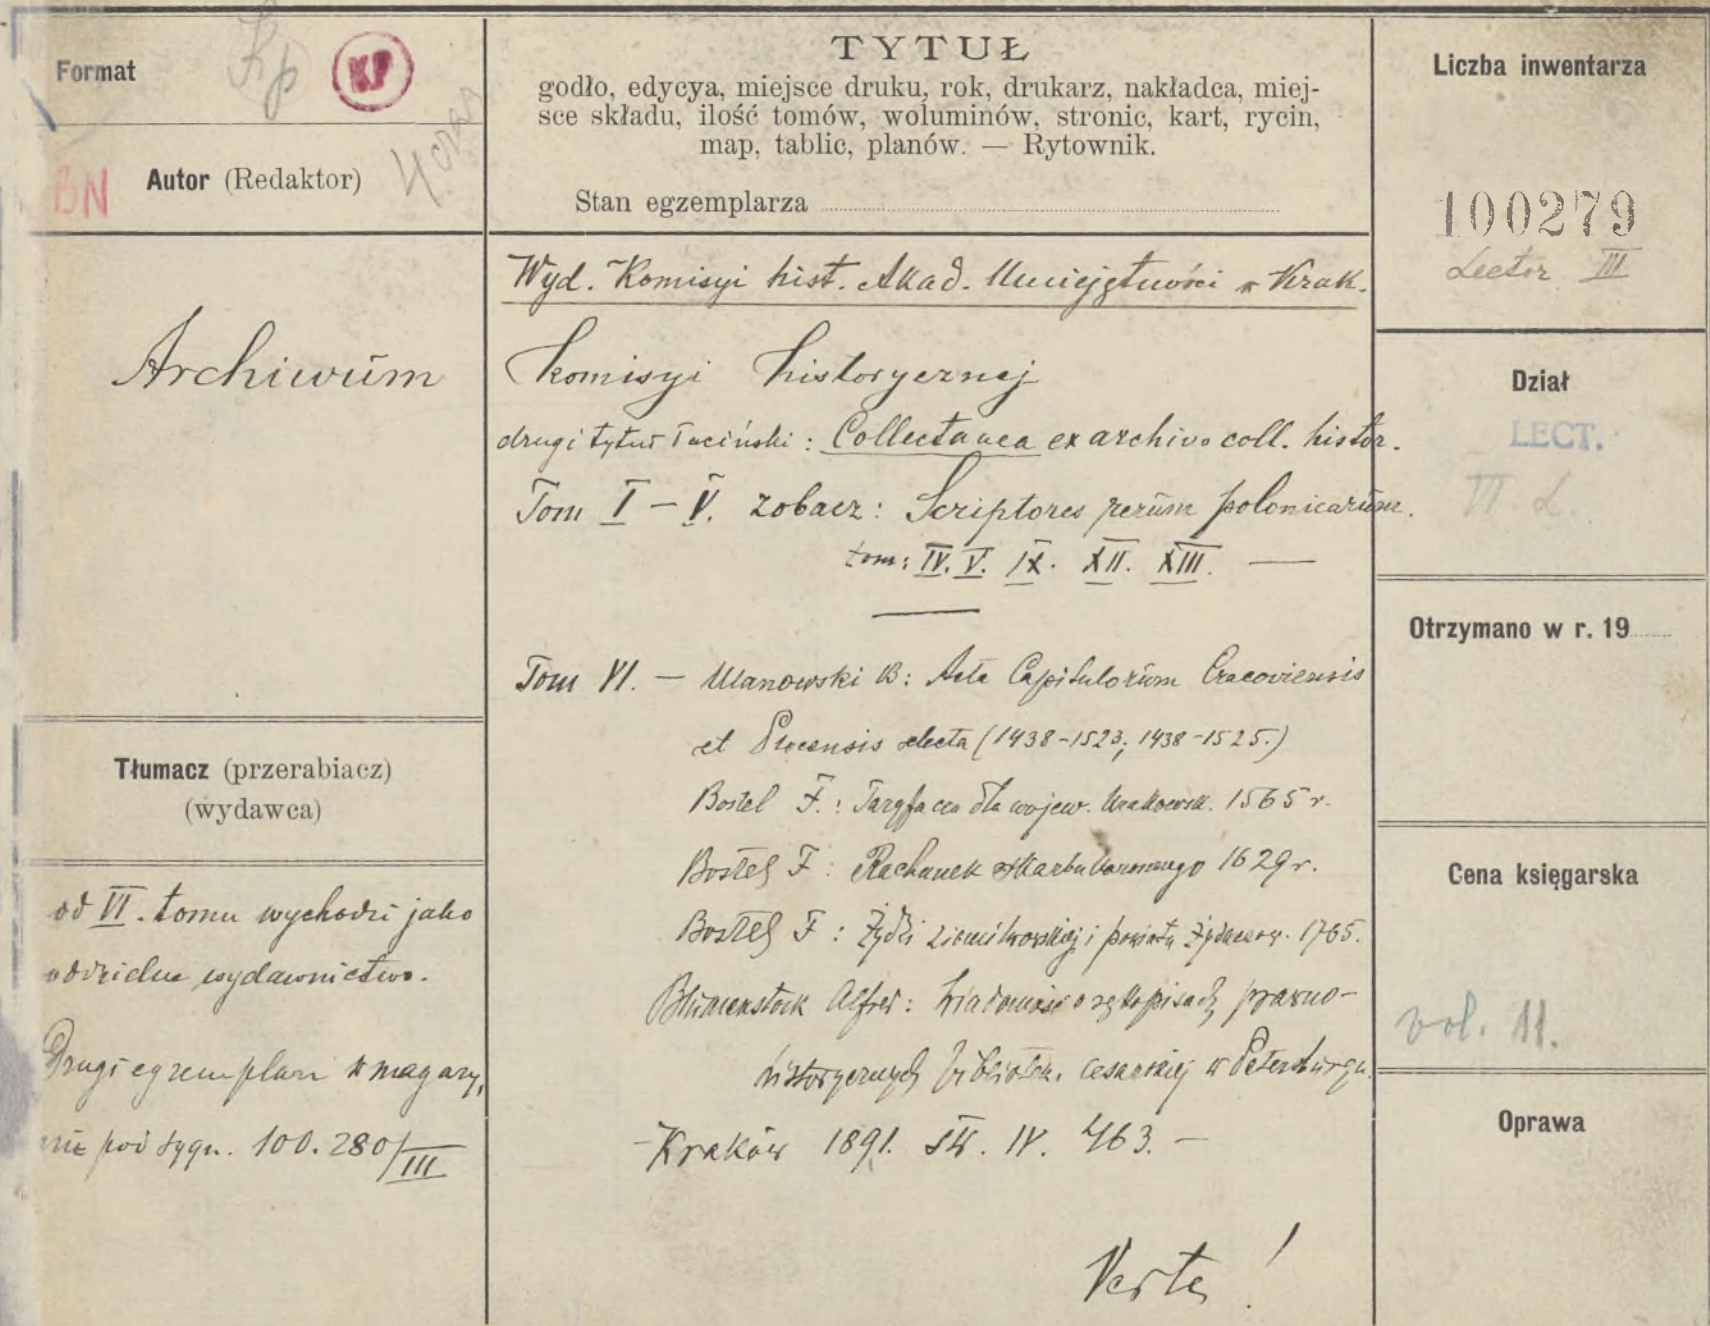 Format
Kp
KP
BN
Autor (Redaktor)
Archiwum
Tłumacz (przerabiacz)
(wydawca)
od VI. tomu wychodzi jako
oddzielne wydawnictwo.
Drugi egzemplarz w magazy,
nie pod sygn. 100.280/III
TYTUŁ
godło, edycya, miejsce druku, rok, drukarz, nakładca, miej-
sce składu, ilość tomów, woluminów, stronic, kart, rycin,
map, tablic, planów. — Rytownik.
Stan egzemplarza
Wyd. Komisyi hist. Akad. Umiejętności w Krak.
Komisyi historycznej
drugi tytuł łaciński: Collectanea ex archivo coll. histor.
Tom I – V. zobacz: Scriptores rerum polonicarum.
tom: IV. V. IX. XII. XIII. —
Tom VI. — Ulanowski B: Acta Capitulorum Cracoviensis
et Plocensis selecta (1438-1523; 1438-1525.)
Bostel F.: Taryfa cen dla wojew. Krakowsk. 1565 r.
Bostel F: Rachunek skarbu koronnego 1629 r.
Bostel F: Żydzi ziemi lwowskiej i powiatu Żydaczow. 1765.
Blumenstock Alfred: Wiadomość o rękopisach prawno-
historycznych bibliotek. cesarskiej w Petersburgu.
– Kraków 1891. str. IV. 463. –
Verte!
Liczba inwentarza
100279
Lector III
Dział
LECT.
VI L.
Otrzymano w r. 19
Cena księgarska
vol. 11.
Oprawa